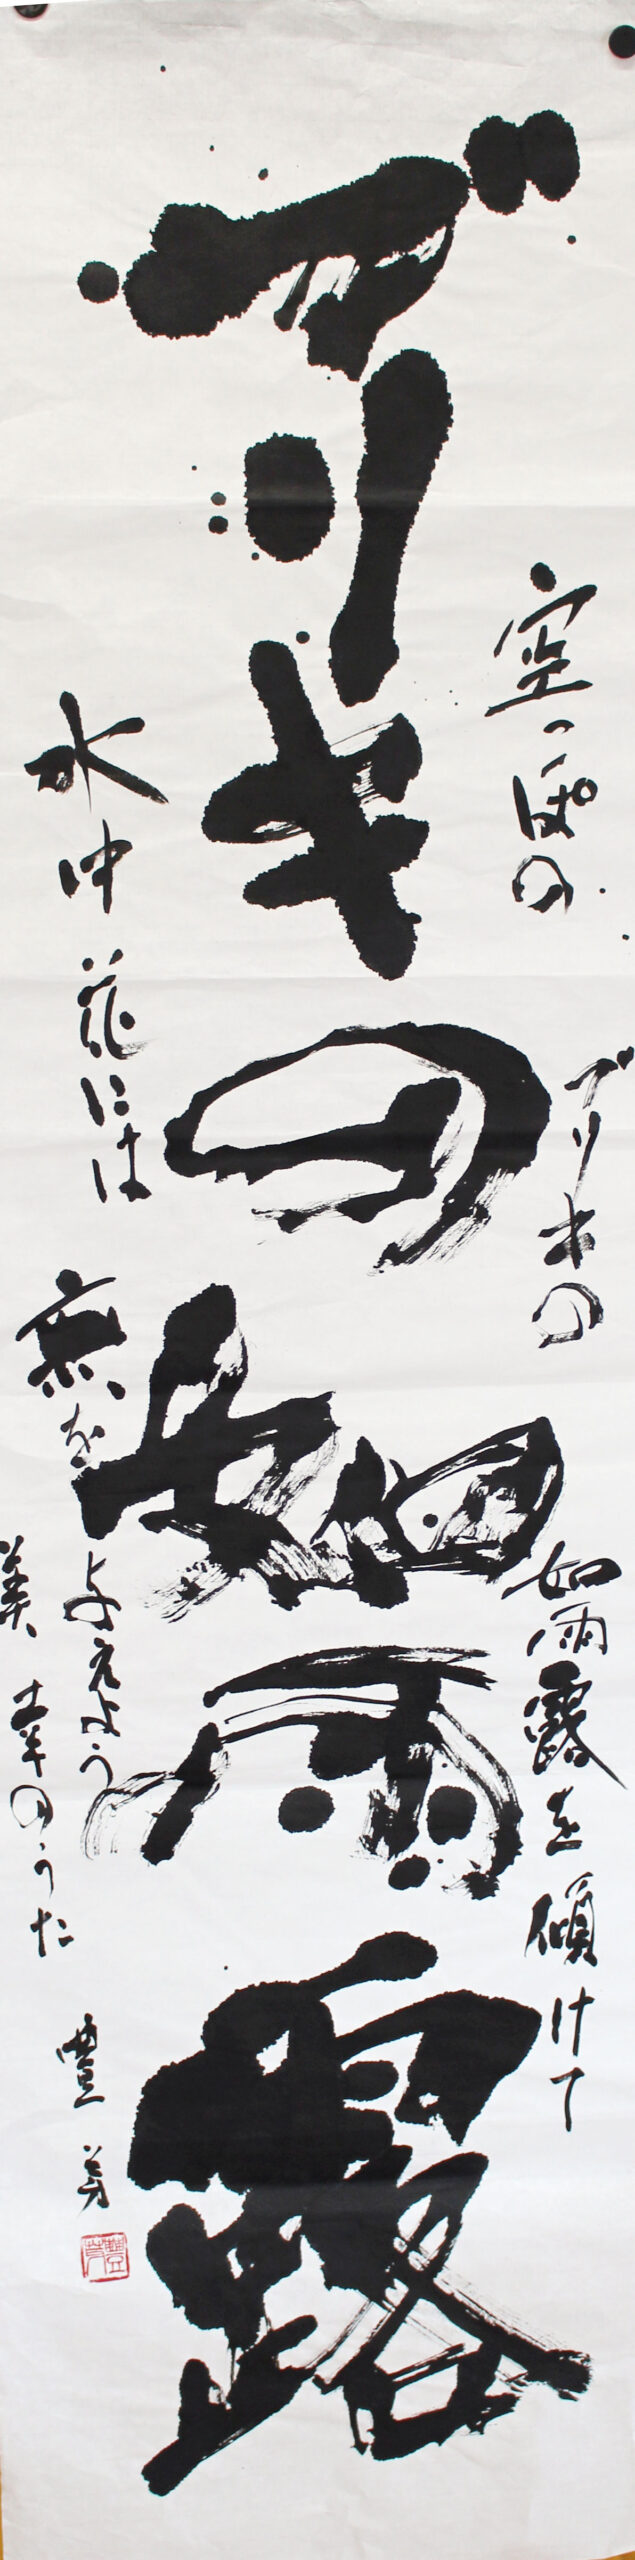 空っぽの
ブリキの
如雨露を傾けて
ブリキの如雨露
水中花には
無を
与えよう
美幸のうた
豊芳